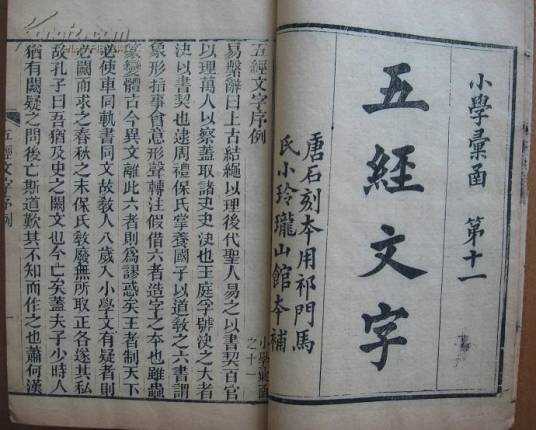 小學彙函 第十一
五經文字
唐石刻本用祁門馬
氏小玲瓏山館本補
五經文字序例
小學彙函
之十一
易繫辭曰上古結繩以理後代聖人易之以書契百官
以理萬人以察蓋取諸夬夬決也王庭孚號決之大者
決以書契也逮周禮保氏掌養國子以道教之六書謂
象形指事會意形聲轉注假借六者造字之本也雖蟲
篆變體古今異文離此六者則爲謬惑矣王者制天下
必使車同軌書同文故教人八歲入小學文有疑者則
必闕而求之春秋之末保氏教廢無所取正各遂其私
故孔子曰吾猶及史之闕文也今亡矣蓋夫子少時人
猶有闕疑之問後亡斯道歎其不知而作之也蕭何漢
五經文字序例